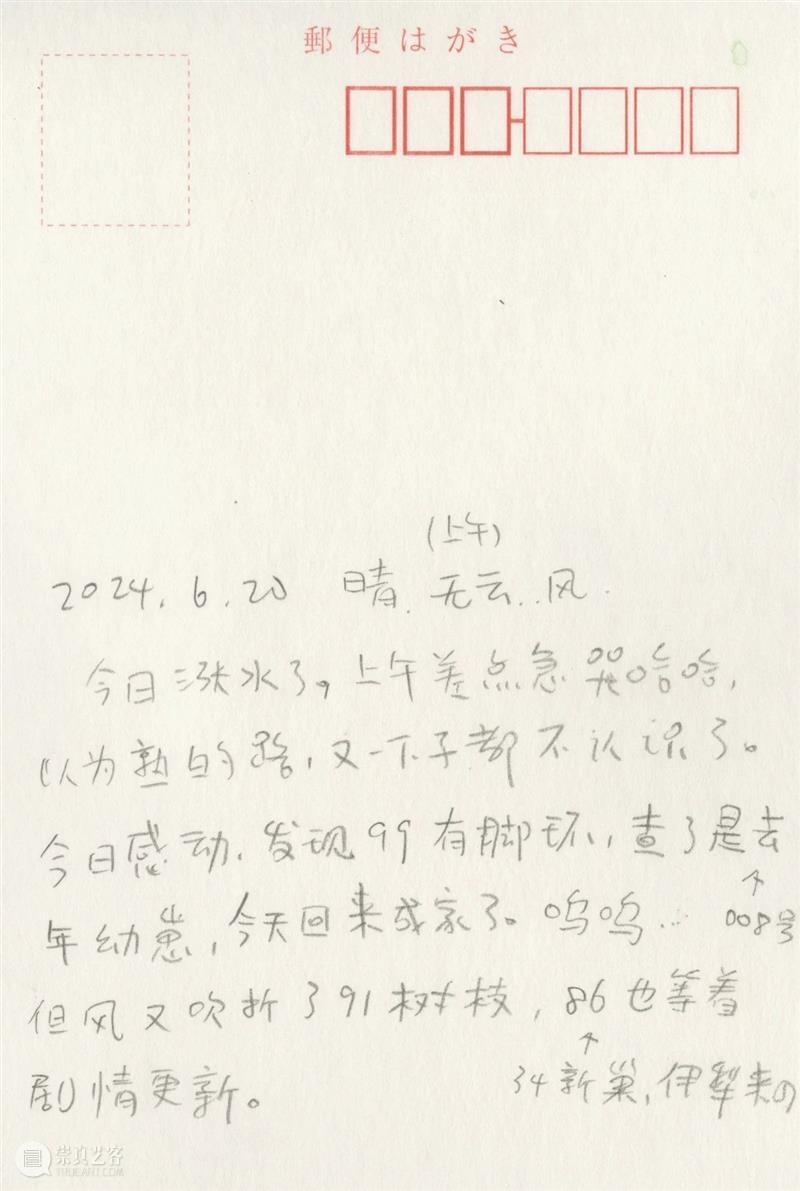 郵便はがき
(上午)
2024.6.20 晴. 无云..风.
今日涨水了。上午差点急哭哈哈,
以为熟的路,又一下子都不认识了。
今日感动.发现99有脚环,查了是去
年幼崽,今天回来成家了。呜呜...
↑
008号
但风又吹折了91树枝,86也等着
剧情更新。
↑
34新巢,伊犁来の
崇真艺客
TRUEART.COM